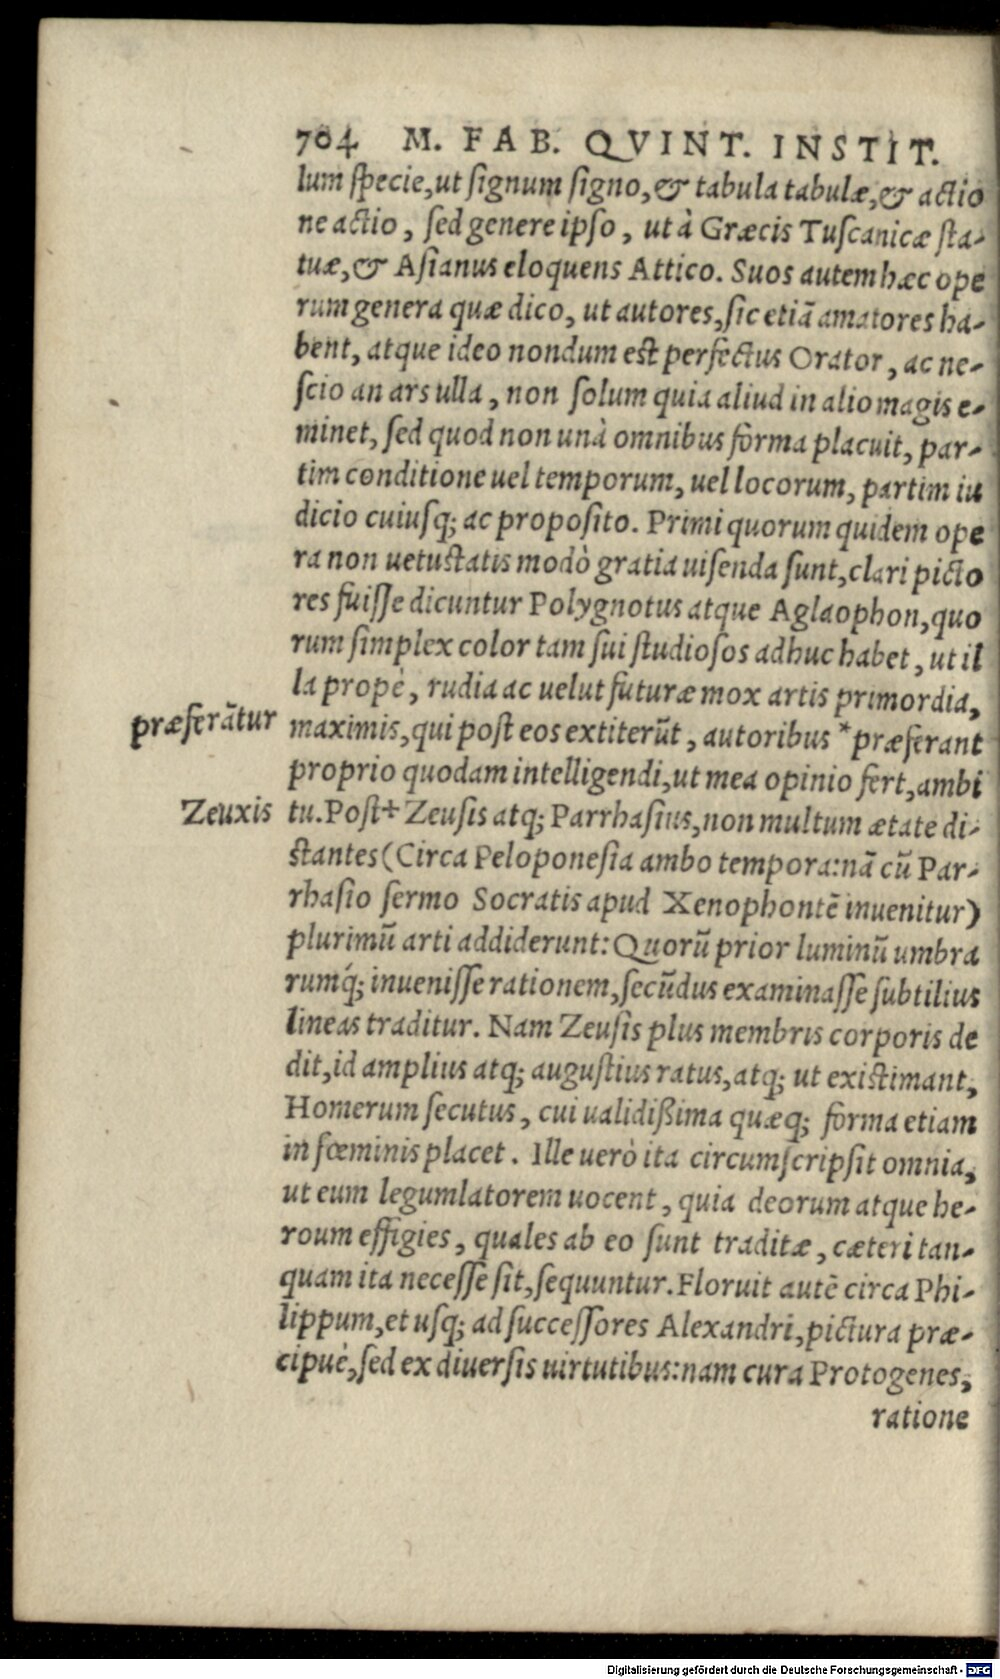 704 M. FAB. QVINT. INSTIT.
lum specie, ut signum signo, & tabula tabulæ, & actio
ne actio, sed genere ipso, ut à Græcis Tuscanicæ sta-
tuæ, & Asianus eloquens Attico. Suos autem hæc ope
rum genera quæ dico, ut autores, sic etiā amatores ha-
bent, atque ideo nondum est perfectus Orator, ac ne-
scio an ars ulla, non solum quia aliud in alio magis e-
minet, sed quod non unà omnibus forma placuit, par-
tim conditione uel temporum, uel locorum, partim iu
dicio cuiusq; ac proposito. Primi quorum quidem ope
ra non uetustatis modò gratia uisenda sunt, clari picto
res fuisse dicuntur Polygnotus atque Aglaophon, quo
rum simplex color tam sui studiosos adhuc habet, ut il
la propè, rudia ac uelut futuræ mox artis primordia,
præferātur
maximis, qui post eos extiterūt, autoribus *præferant
proprio quodam intelligendi, ut mea opinio fert, ambi
Zeuxis
tu. Post+ Zeusis atq; Parrhasius, non multum ætate di-
stantes (Circa Peloponesia ambo tempora: nā cū Par-
rhasio sermo Socratis apud Xenophontē inuenitur)
plurimū arti addiderunt: Quorū prior luminū umbra
rumq́; inuenisse rationem, secūdus examinasse subtilius
lineas traditur. Nam Zeusis plus membris corporis de
dit, id amplius atq; augustius ratus, atq; ut existimant,
Homerum secutus, cui ualidißima quæq; forma etiam
in fœminis placet. Ille uerò ita circumscripsit omnia,
ut eum legumlatorem uocent, quia deorum atque he-
roum effigies, quales ab eo sunt traditæ, cæteri tan-
quam ita necesse sit, sequuntur. Floruit autē circa Phi-
lippum, et usq; ad successores Alexandri, pictura præ-
cipuè, sed ex diuersis uirtutibus: nam cura Protogenes,
ratione
Digitalisierung gefördert durch die Deutsche Forschungsgemeinschaft - DFG